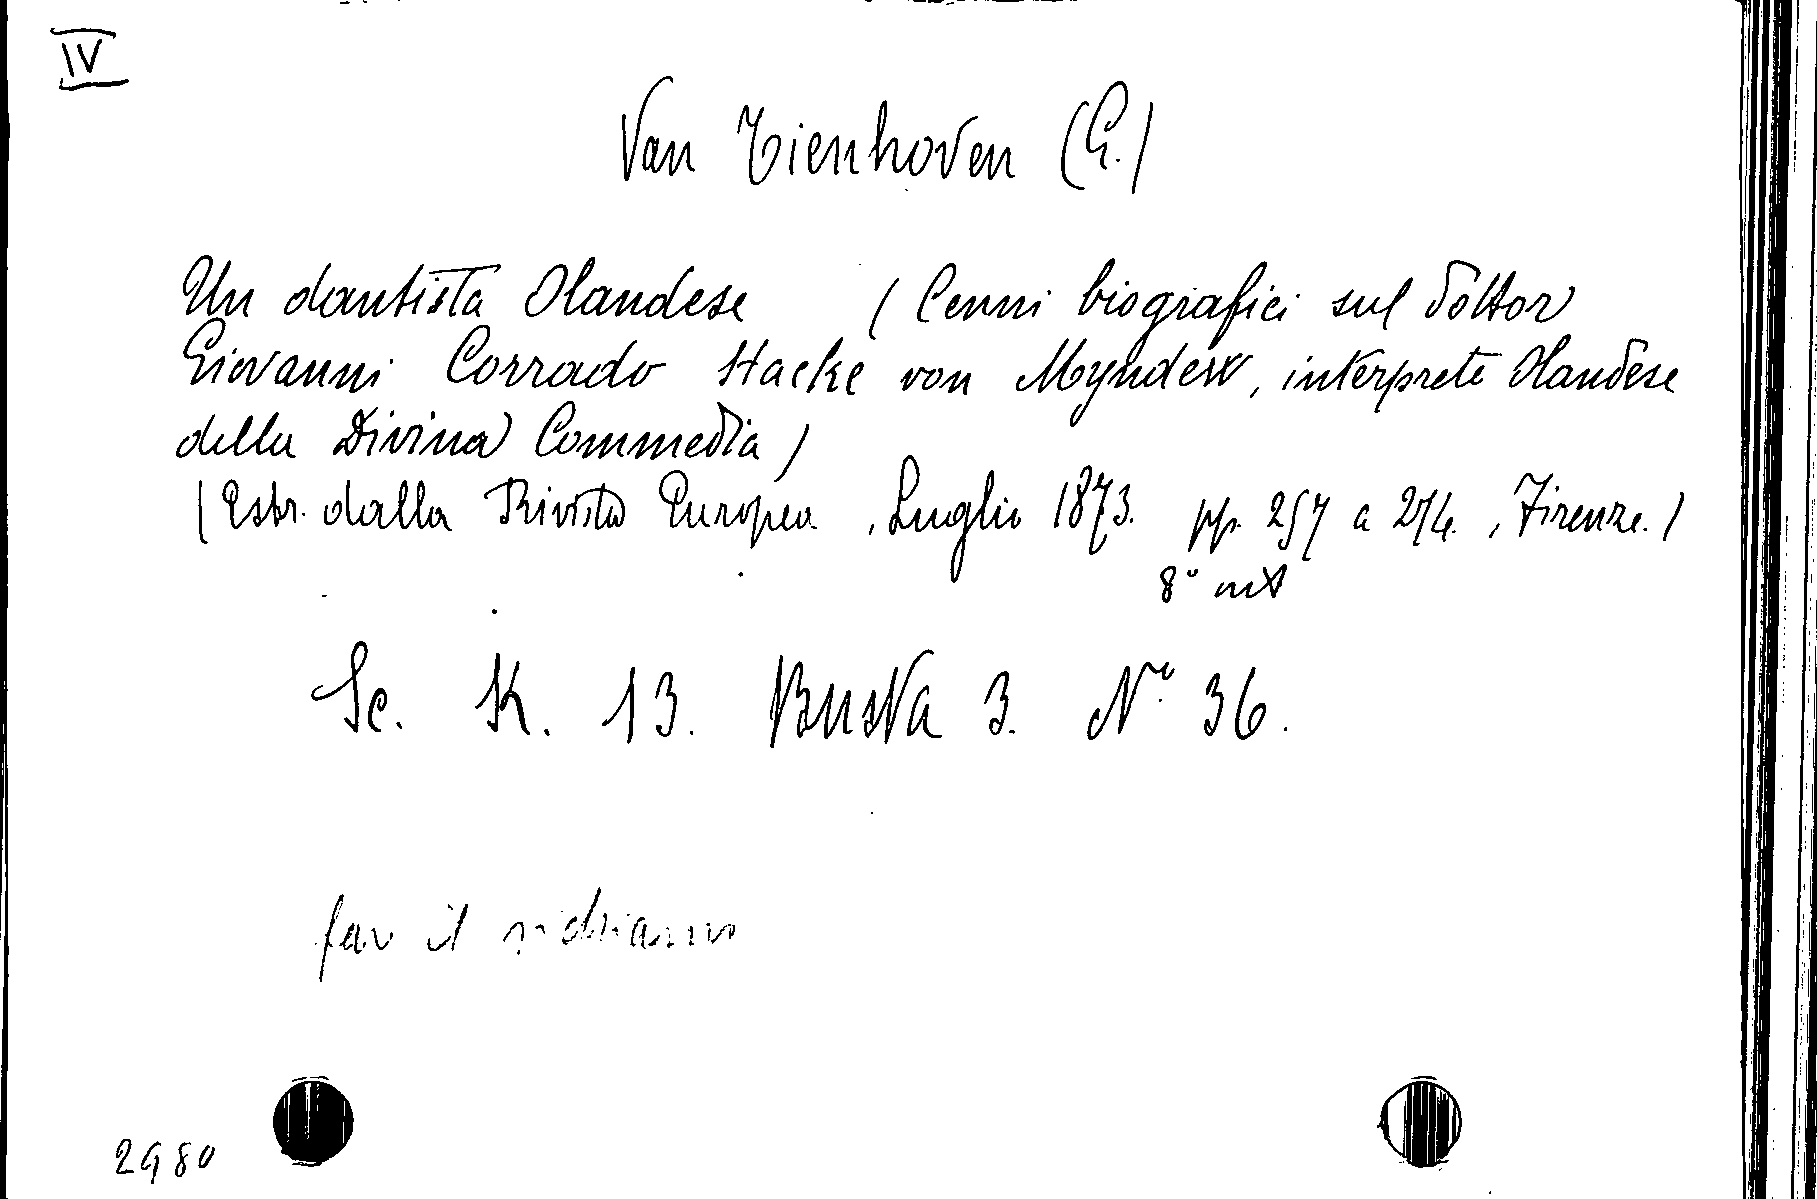 IV
Van Tienhoven (G.)
Un dantista Olandese (Cenni biografici sul dottor
Giovanni Corrado Hacke von Mynden, interprete Olandese
della Divina Commedia)
(Estr. dalla Rivista Europea, Luglio 1873. pp. 257 a 274., Firenze.)
8°
Sc. K. 13. Busta 3. N.° 36.
far il richiamo
2980